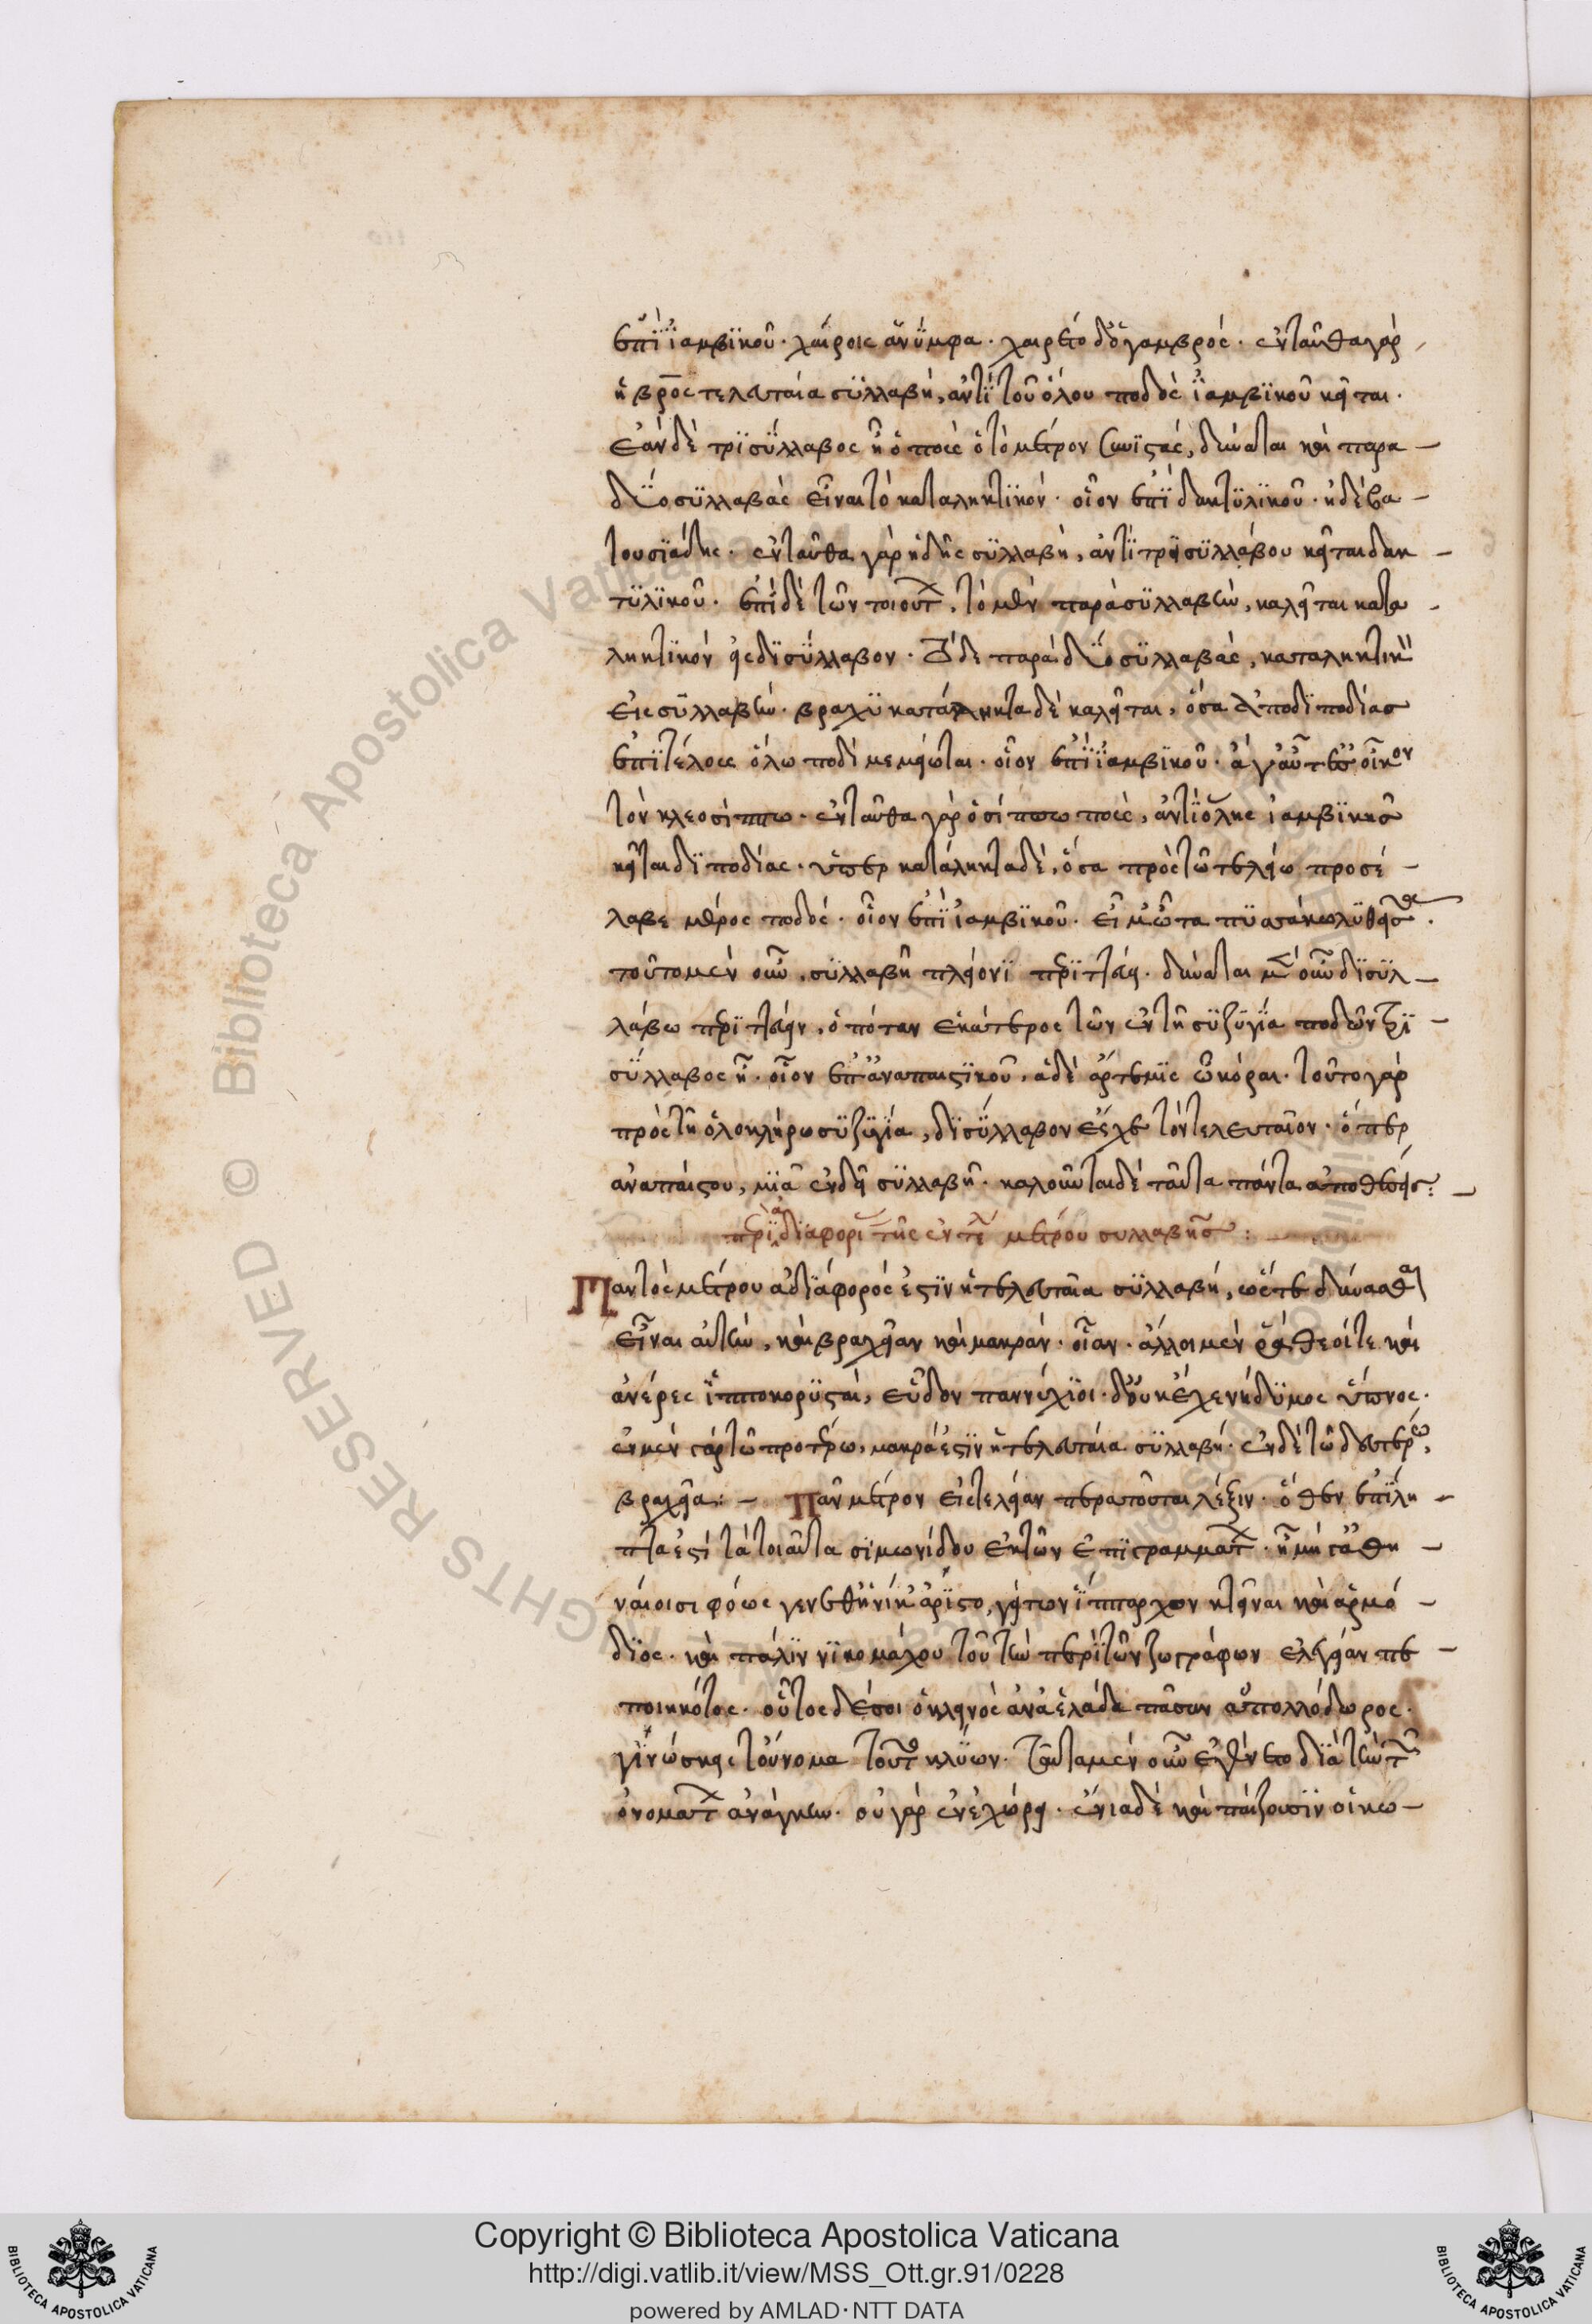 ἐπὶ ἰαμβικοῦ· χαίροις ἁ νύμφα· χαιρέτω δ' ὁ γαμβρός· ἐνταῦθα γὰρ
ἡ βρος τελευταία συλλαβή, ἀντὶ τοῦ ὅλου ποδὸς ἰαμβικοῦ κεῖται·
ἐὰν δὲ τρισύλλαβος ᾖ ὁ ποὺς ὁ τὸ μέτρον συνιστάς, δύναται καὶ παρα
δύο συλλαβὰς εἶναι τὸ καταληκτικόν· οἷον ἐπὶ δακτυλικοῦ· ἠδὲ βα
τουσιάδης· ἐνταῦθα γὰρ ἡ δης συλλαβὴ, ἀντὶ τρισυλλάβου κεῖται δακ
τυλικοῦ· ἐπὶ δὲ τῶν τοιούτ, τὸ μὲν παρὰ συλλαβὴν, καλεῖται κατα
ληκτικὸν εἰς δισύλλαβον· τὸ δὲ παρὰ δύο συλλαβὰς, καταληκτικ
εἰς συλλαβήν· βραχυκατάληκτα δὲ καλεῖται, ὅσα ἀπὸ διποδίας
ἐπὶ τέλους ὅλω ποδὶ μεμείωται· οἷον ἐπὶ ἰαμβικοῦ· ἄγ' αὖτ' ἐς οἶκον
τὸν κλεοσίππω· ἐνταῦθα γὰρ ὁ σίππω ποὺς, ἀντὶ ὅλης ἰαμβικῆς
κεῖται διποδίας· ὑπερκατάληκτα δὲ, ὅσα πρὸς τῶ τελείω προσέ
λαβε μέρος ποδός· οἷον ἐπὶ ἰαμβικοῦ·
τοῦτο μὲν οὖν, συλλαβῆ πλέονι περιττεύει· δύναται μέντοι δισυλ
λάβω περιττεύειν, ὁπόταν ἑκάτερος τῶν ἐν τῆ συζυγία ποδῶν τρι
σύλλαβος ᾖ· οἷον ἐπ' ἀναπαιστικοῦ, ἁ δὲ ἄρτεμις ὦ κόραι· τοῦτο γὰρ
πρὸς τῆ ὁλοκλήρω συζυγία, δισύλλαβον ἔσχε τὸν τελευταῖον· ὅπερ
ἀναπαίστου, μιᾶ ἐνδεῖ συλλαβῆ· καλοῦνται δὲ ταῦτα πάντα ἀποθέσεις:
περὶ ἀδιαφόρ τῆς ἐν τέλ μέτρου συλλαβῆς:
Παντὸς μέτρου ἀδιάφορός ἐστιν ἡ τελευταία συλλαβή, ὥστε δύνασθαι
εἶναι αὐτὴν, καὶ βραχεῖαν καὶ μακράν· οἷαν· ἄλλοι μὲν ῥα θεοί τε καὶ
ἀνέρες ἱπποκορυσταί, εὗδον παννύχιοι· δ' οὐκ ἔχε νήδυμος ὕπνος·
ἐν μὲν γὰρ τῶ προτέρω, μακρά ἐστιν ἡ τελευταία συλλαβή· ἐν δὲ τῶ δευτέρω,
βραχεῖα:- Πᾶν μέτρον εἰς τελείαν περατοῦται λέξιν· ὅθεν ἐπίλη
πτα ἐστὶ τὰ τοιαῦτα σιμωνίδου ἐκ τῶν ἐπιγραμμάτ· ἦ μέγ' ἀθη
ναίοισι φόως γένεθ' ἡνίκ' ἀριστο, γείτων ἵππαρχον κτεῖναι καὶ ἁρμό
διος· καὶ πάλιν νικομάχου τοῦ τὴν περὶ τῶν ζωγράφων ἐλεγείαν πε
ποιηκότος· οὗτος δέ σοι ὁ κλεινὸς ἀνὰ ἑλάδα πᾶσαν ἀπολλόδωρος·
γινώσκεις τοὔνομα τοῦτ κλύων· ταῦτα μὲν οὖν ἐγένετο διὰ τὴν τ
ὀνομάτ ἀνάγκην· οὐ γὰρ ἐνεχώρει· ἔνια δὲ καὶ παίζουσιν οἱ κω